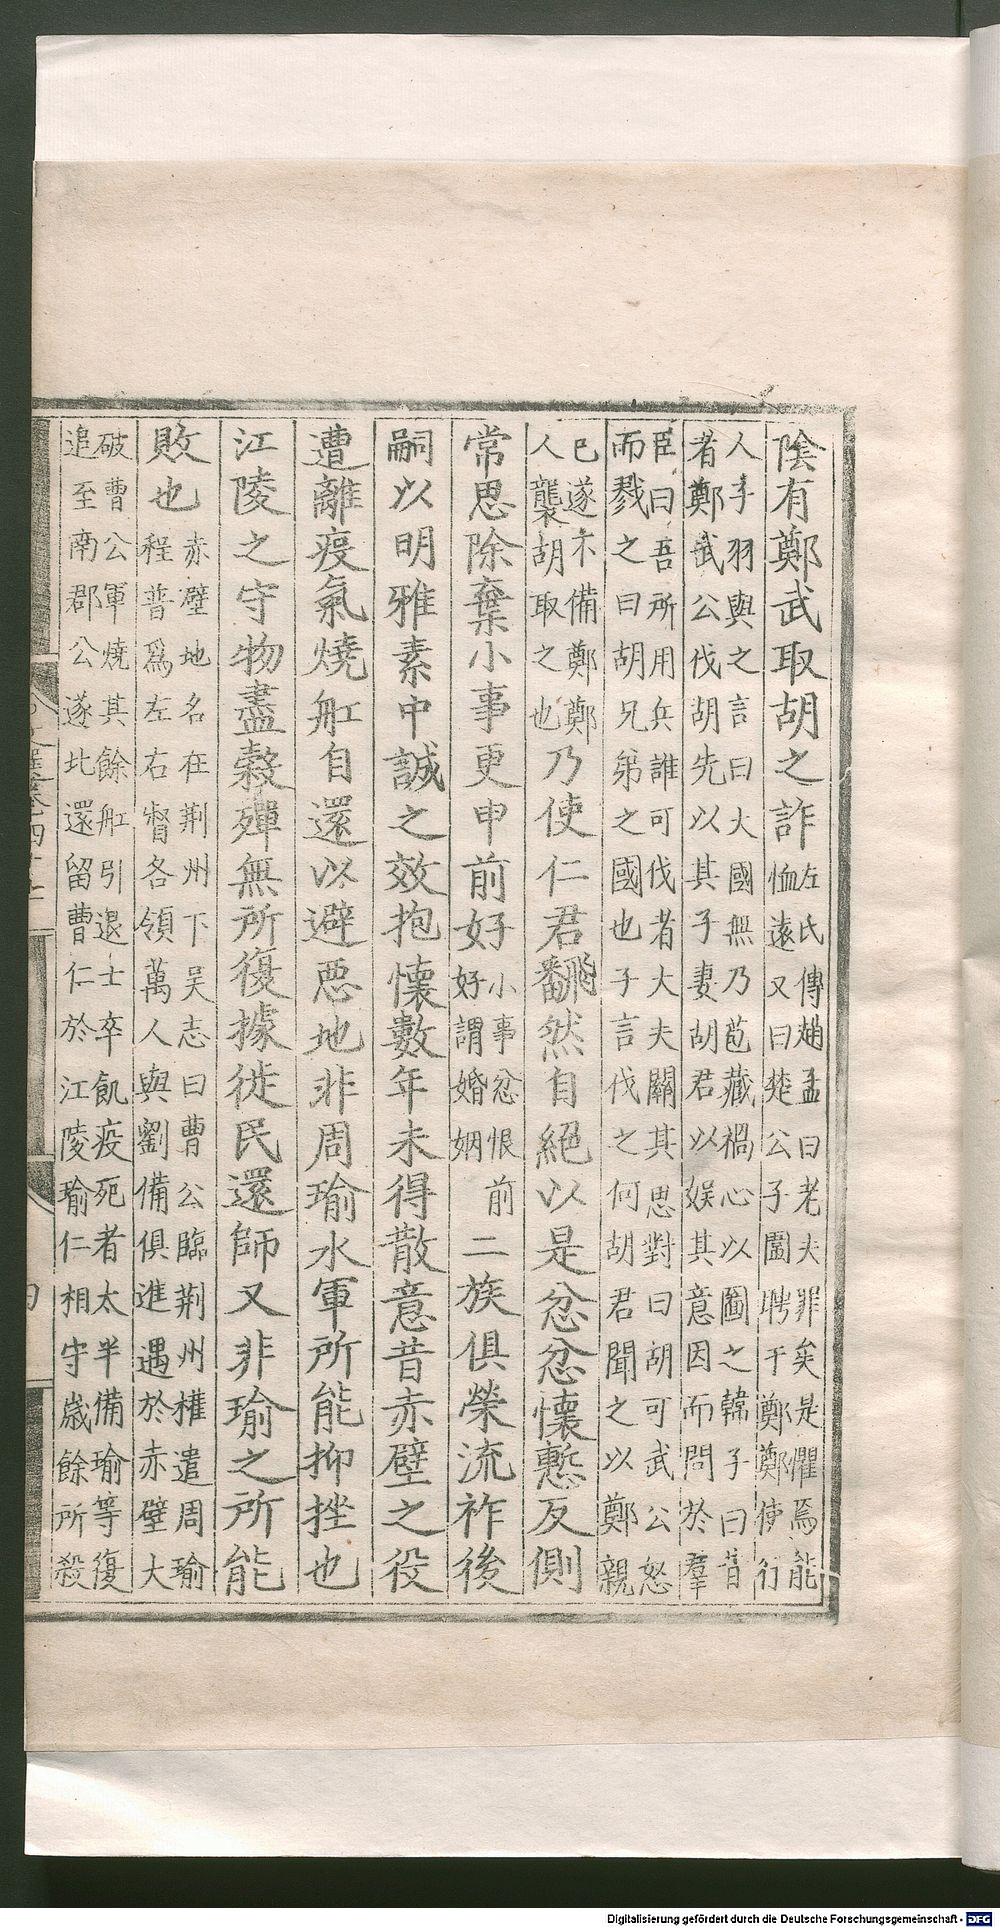 陰有鄭武取胡之詐左氏傳趙孟曰老夫罪矣是懼焉能恤遠又曰楚公子圍聘于鄭鄭使行
人子羽與之言曰大國無乃苞藏禍心以圖之韓子曰昔者鄭武公伐胡先以其子妻胡君以娛其意因而問於羣
臣曰吾所用兵誰可伐者大夫關其思對曰胡可武公怒而戮之曰胡兄弟之國也子言伐之何胡君聞之以鄭親
已遂不備鄭鄭人襲胡取之也乃使仁君翻然自絕以是忿忿懷慙反側
常思除棄小事更申前好小事忿恨前好謂婚姻二族俱榮流祚後
嗣以明雅素中誠之效抱懷數年未得散意昔赤壁之役
遭離疫氣燒舡自還以避惡地非周瑜水軍所能抑挫也
江陵之守物盡穀殫無所復據徙民還師又非瑜之所能
敗也赤壁地名在荆州下吴志曰曹公臨荆州權遣周瑜程普爲左右督各領萬人與劉備俱進遇於赤壁大
破曹公軍燒其餘舡引退士卒飢疫死者太半備瑜等復追至南郡公遂北還留曹仁於江陵瑜仁相守歲餘所殺
Digitalisierung gefördert durch die Deutsche Forschungsgemeinschaft - DFG